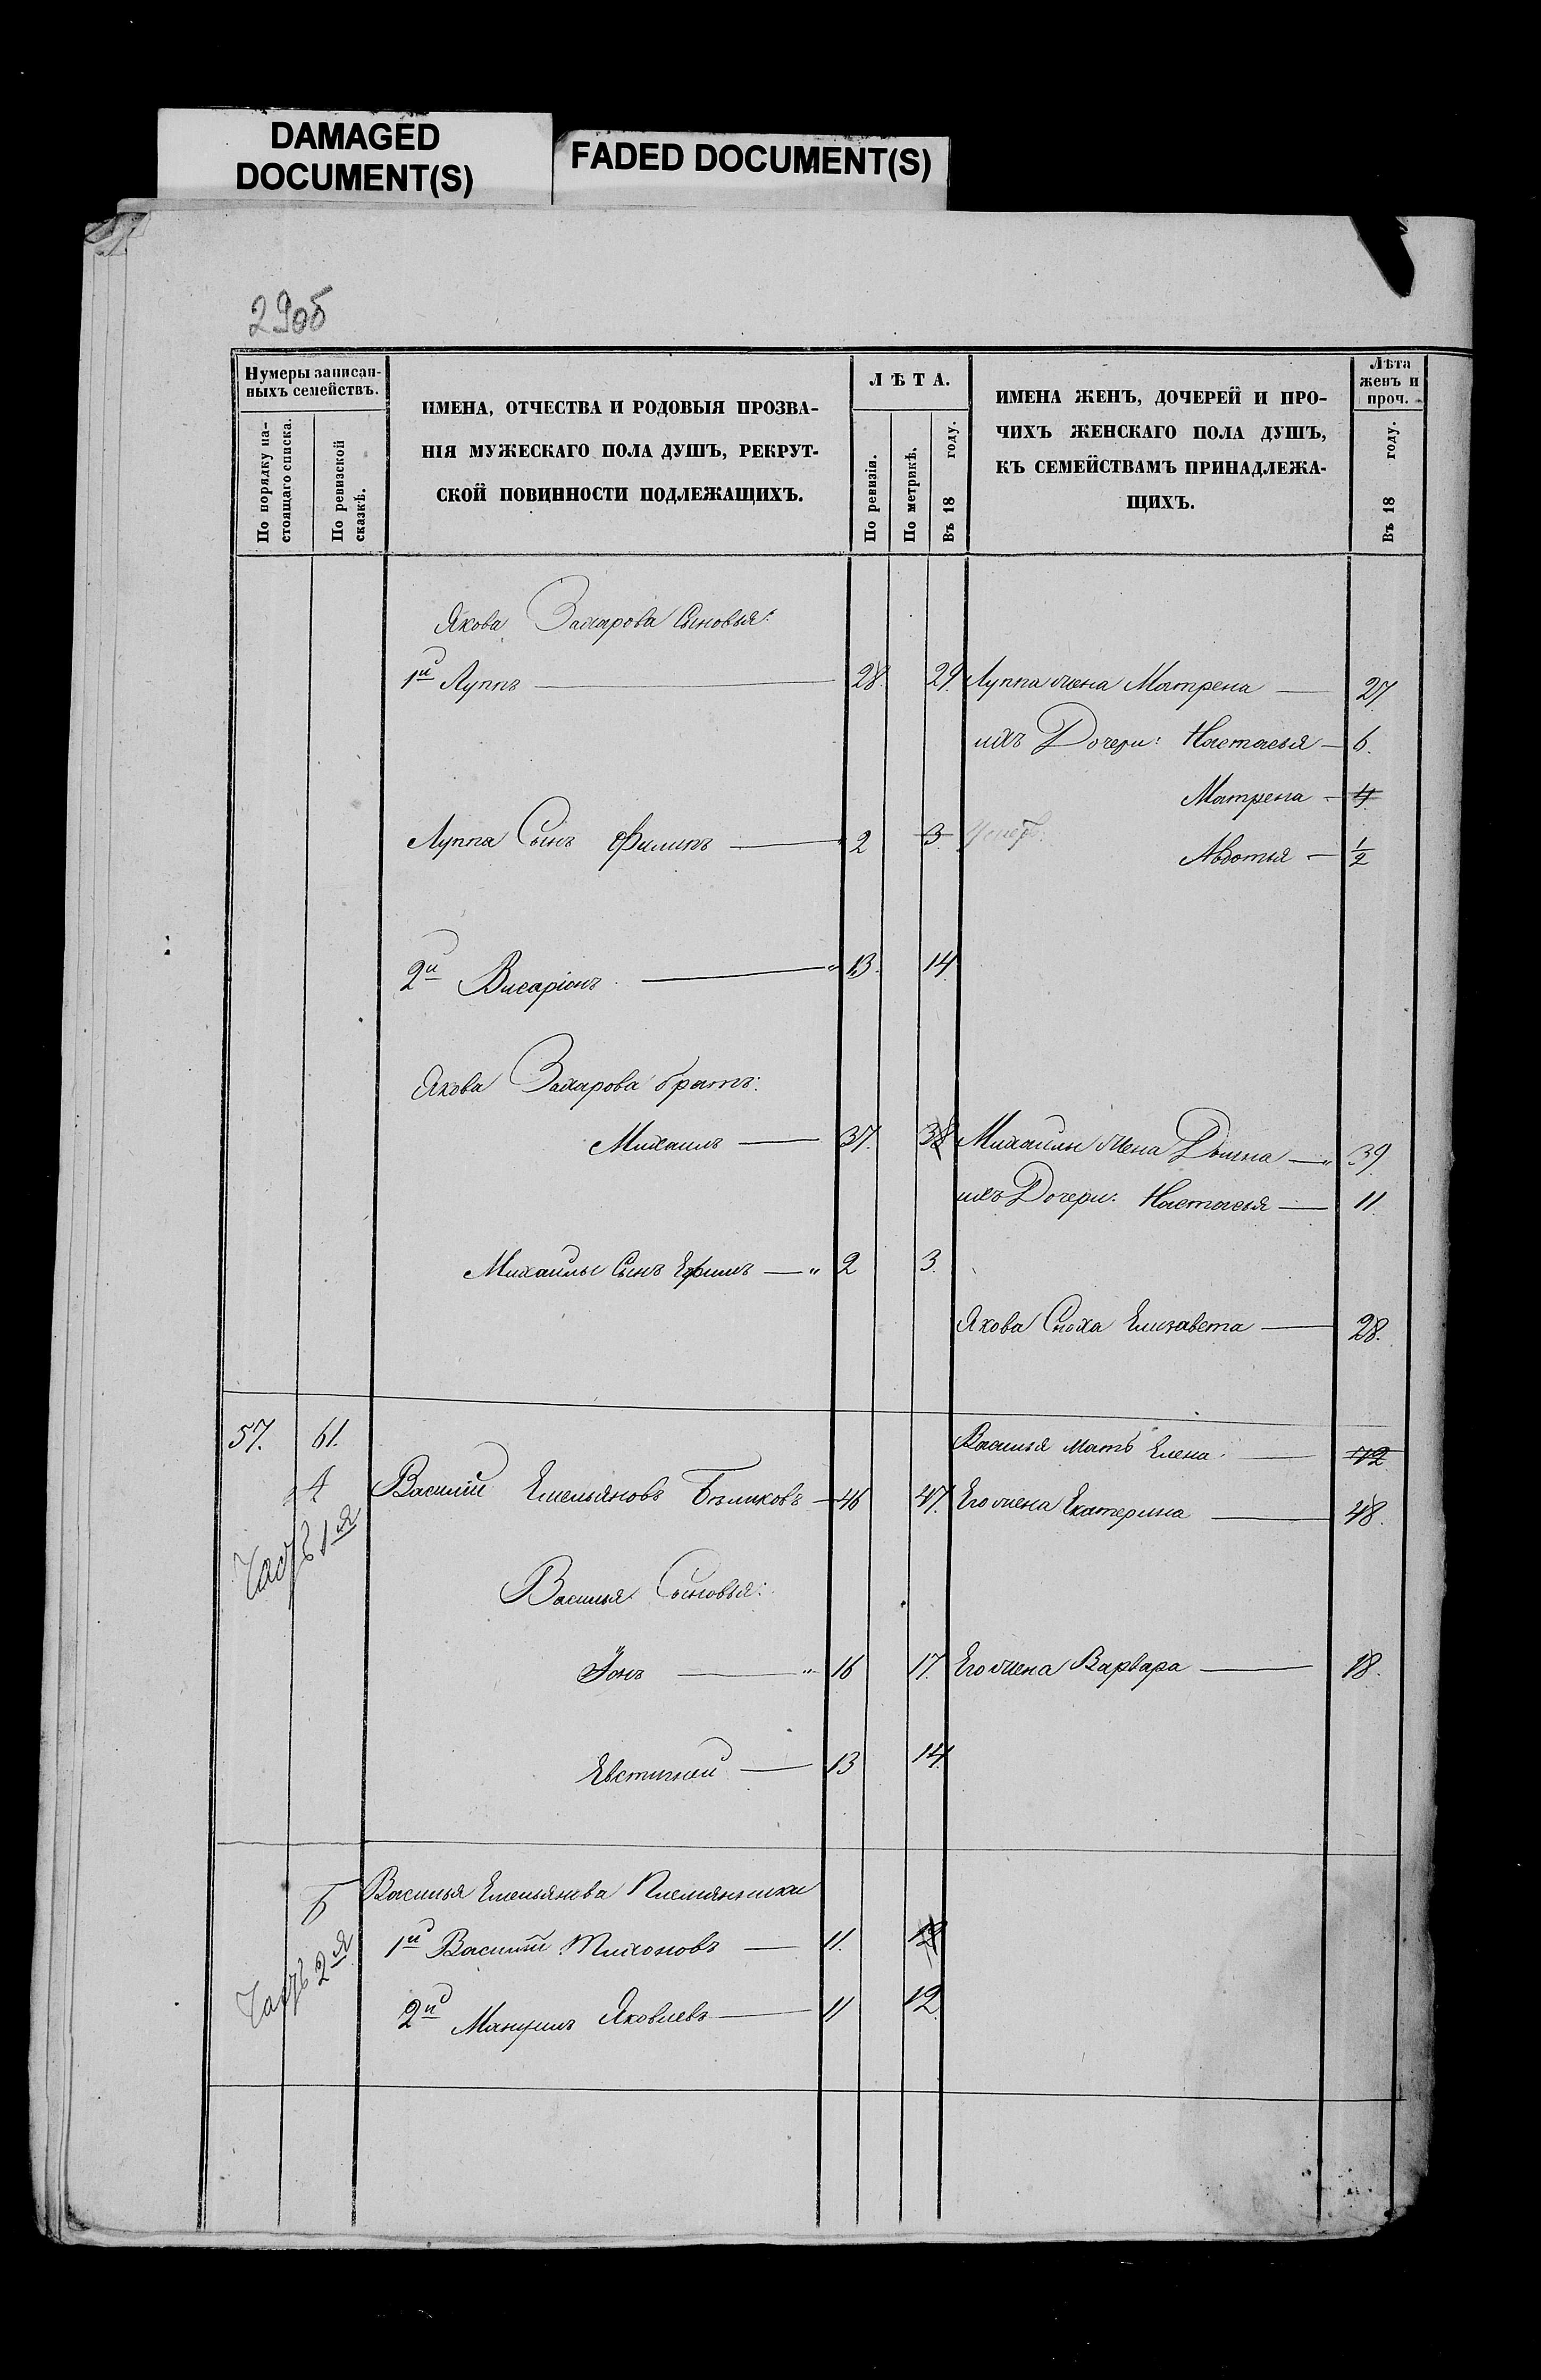 DAMAGED
DOCUMENT(S)
FADED DOCUMENT(S)
29об
Нумеры записан-
ныхъ семействъ.
По порядку на-
стоящаго списка.
По ревизской
сказкѣ.
ИМЕНА, ОТЧЕСТВА И РОДОВЫЯ ПРОЗВА-
НІЯ МУЖЕСКАГО ПОЛА ДУШЪ, РЕКРУТ-
СКОЙ ПОВИННОСТИ ПОДЛЕЖАЩИХЪ.
ЛѢТА.
По ревизіи.
По метрикѣ.
Въ 18 году.
ИМЕНА ЖЕНЪ, ДОЧЕРЕЙ И ПРО-
ЧИХЪ ЖЕНСКАГО ПОЛА ДУШЪ,
КЪ СЕМЕЙСТВАМЪ ПРИНАДЛЕЖА-
ЩИХЪ.
Лѣта
женъ и
проч.
Въ 18 году.
Якова Захарова Сыновья:
1й Луппъ — 28. 29. Луппа жена Матрена — 27
ихъ Дочери: Настасья — 6.
Матрена — 4
Луппа Сынъ Филипъ — 2 3
Авдотья — 1/2
2й Висаріонъ — 13. 14
Якова Захарова братъ:
Михаилъ — 37. 38 Михаилы жена — 39
ихъ Дочери: Настасья — 11.
Михаилы Сынъ Ефимъ — 2 3.
Якова Сноха Елизавета — 28.
57. 61. Василья мать Елена — 72
А Василій Емельяновъ Бѣликовъ — 46 47. Его жена Екатерина — 48.
Часть 1я
Василья Сыновья:
Іонъ — 16 17. Его жена Варвара — 18.
Евстигней — 13 14.
Б Василья Емельянова Племянники
Часть 2я
1й Василій Тихоновъ — 11. 12
2й Мануилъ Яковлевъ — 11 12